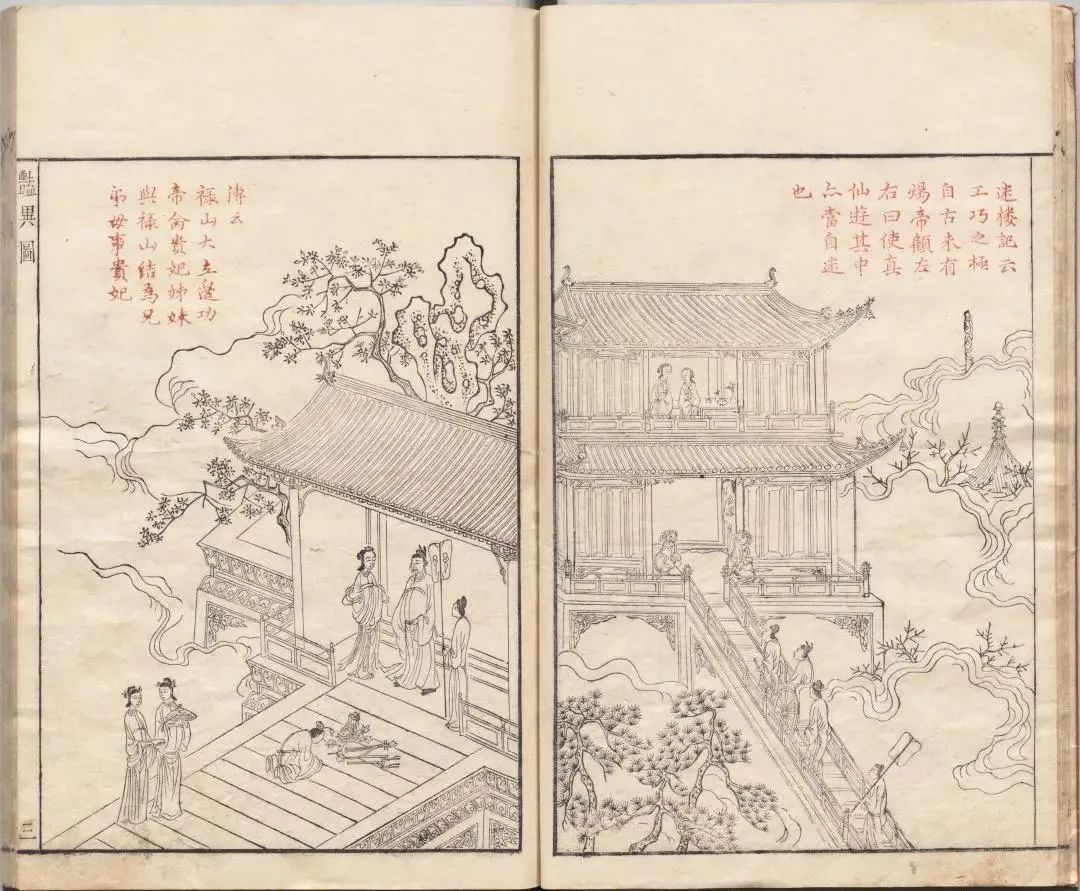 迷楼記云
工巧之極
自古未有
煬帝顧左
右曰使真
仙遊其中
亦當自迷
也
傳云
禄山大立邊功
帝命貴妃姊妹
與禄山結為兄
弟母事貴妃
豔異圖
三